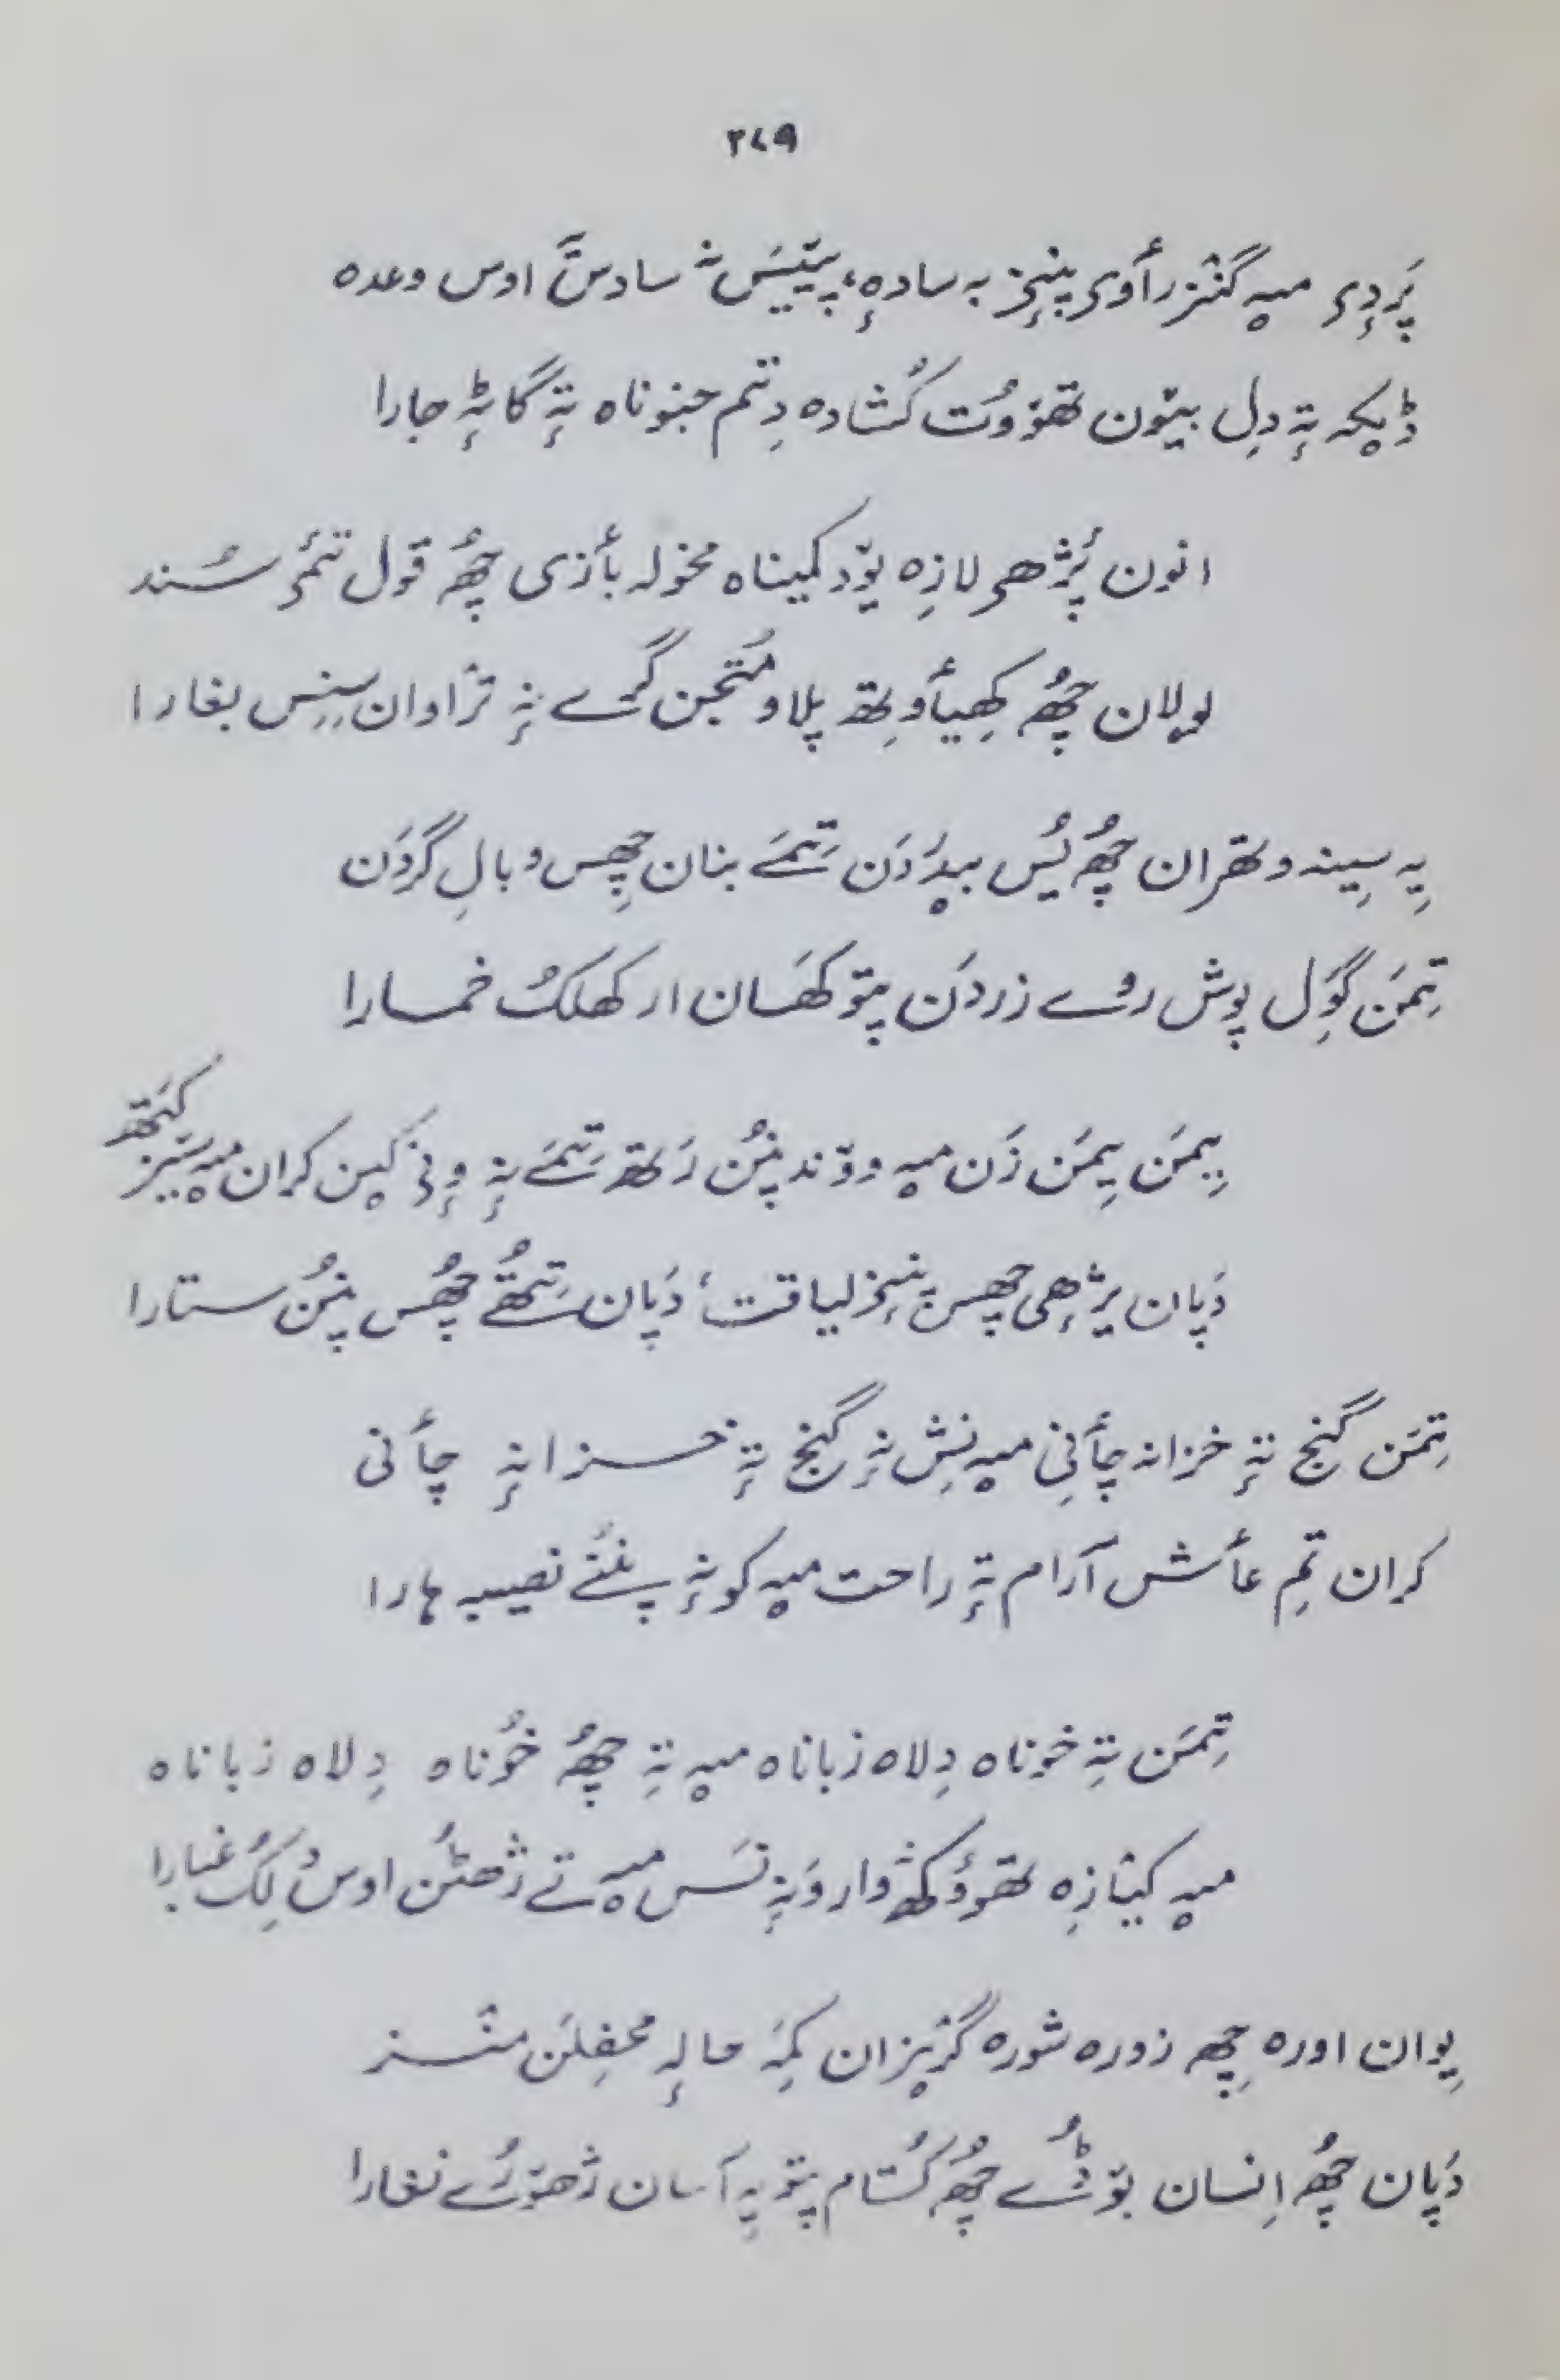 ۲۷۹
پَردِۍ میہٕ گنٛزرأوۍ پنٕنۍ بہ سادہٕ، پیتیَس نہٕ سادسٕ اوس وعدہ
ڈیکہ تہٕ دِل بیوٚن تھوٚوُت کُشادہ دِتم جنوناہ تہٕ گاٹہٕ جارا
انون پُژھۍ لازِہ یوٚد کمیناہ مخولہ بأزی چھُ قول تمۍ سُند
لولان چھُ کھیأوِتھ پلاو مُتجن گرے نہٕ ترٛاوان سِنِس بغارا
یہِ سیٖنہ وتھران چھُ یُس بیدَردَن تِتمَے بنان چھِس وبالِ گردَن
تِمَن گۄل پوش روے زردَن پتوٚ کھَسان از کھلکُ خمارا
یِیمَن یِیمَن زَن میہٕ ووٚند پنُن رَتھ تِتمَے نہٕ وٕنۍ کین کران میہٕ سیٚز کتھ
دَپان پرٛژھی چھس پنٕنۍ لیاقت، دَپان تِتُھے چھُس پنُن ستارا
تِمَن گنج تہٕ خزانہ چأنِی میہٕ نِش نہٕ گنج تہٕ خزانہٕ چأنی
کران تِم عأش آرام تہٕ راحت میہٕ کونہٕ پنُنے نصیبہ ہارا
تِمَن تہٕ خوناہ دِلاہ زباناہ میہٕ تہِ چھُ خوُناہ دِلاہ زباناہ
میہٕ کیٛازِہ تھوٚوُکھ ژوار وَنہٕ نَس میہٕ تے ژھٹُن اوسُ لِکُ غبارا
یِوان اورہ چھِ زورہ شورہ گریزان کمَہِ حالہٕ محفِلَن منٛز
دَپان چھُ اِنسان بوٚڈُے چھُ کُستام پتوٚ یہِ آسان ژھوٚرُے نغارا